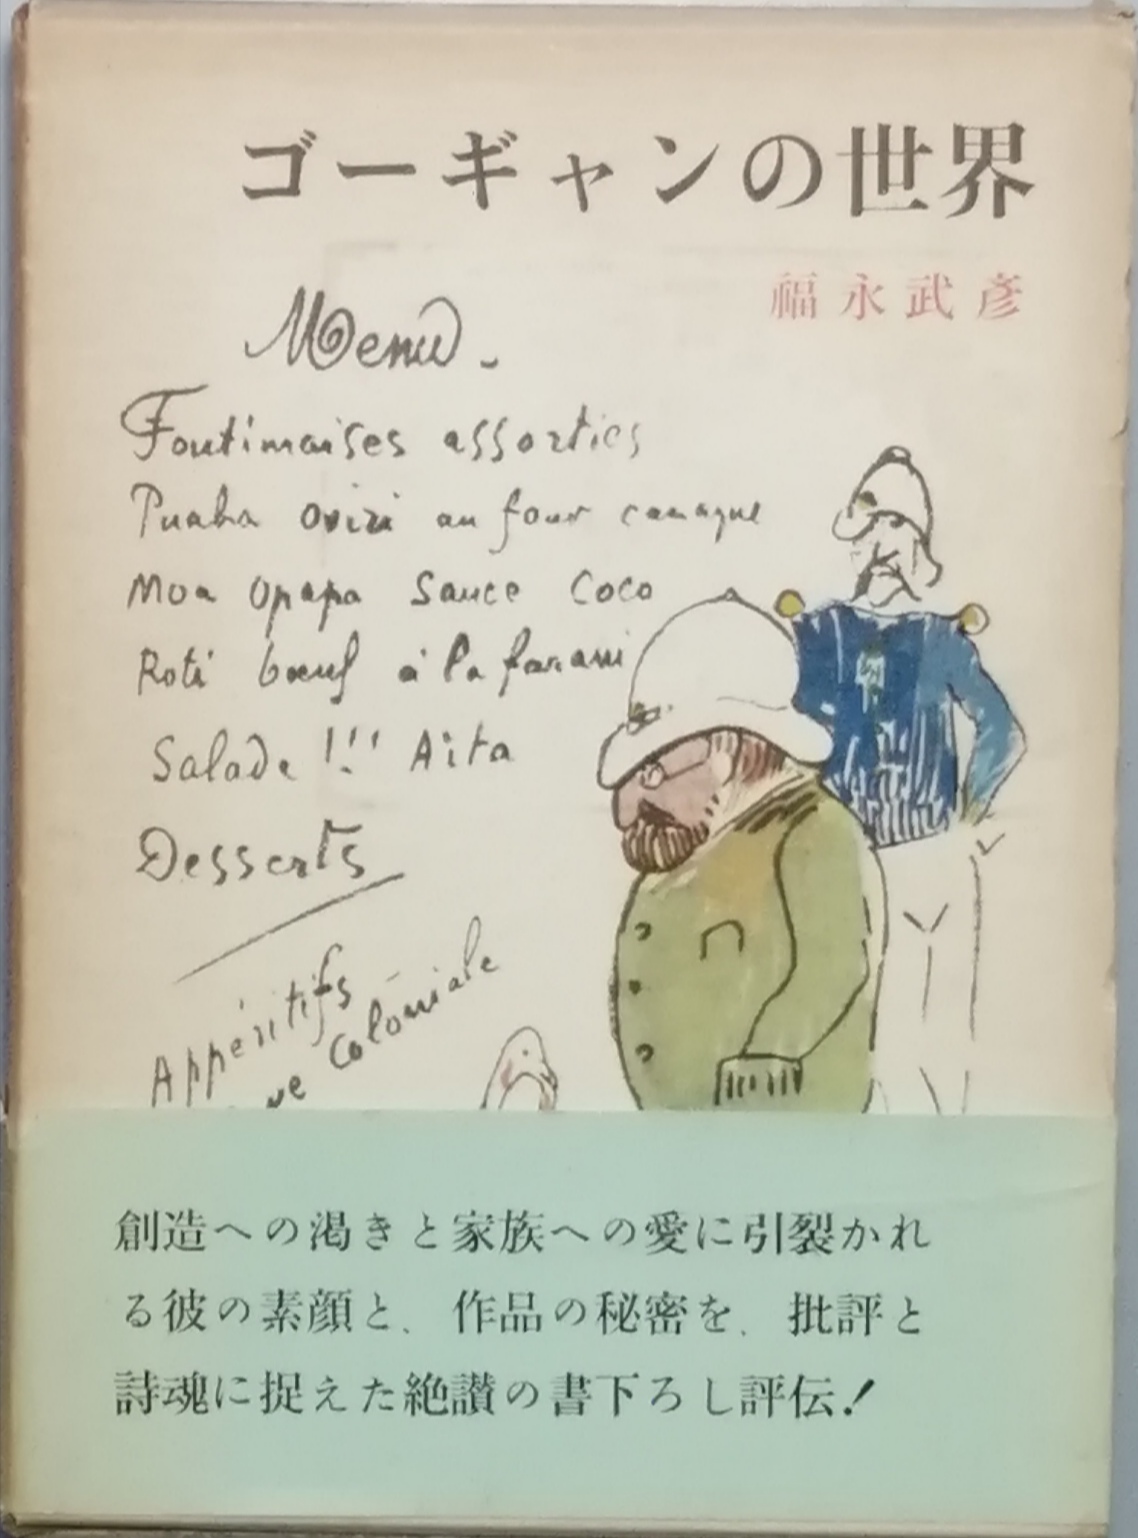 ゴーギャンの世界
福永武彦
Menu.
Foutimaises assorties
Puaha oviri au four canaque
Moa Opapa Sauce Coco
Roti bœuf à la farani
Salade !!! Aita
Desserts
Appéritifs
Coloniale
創造への渇きと家族への愛に引裂かれ
る彼の素顔と、作品の秘密を、批評と
詩魂に捉えた絶讃の書下ろし評伝！